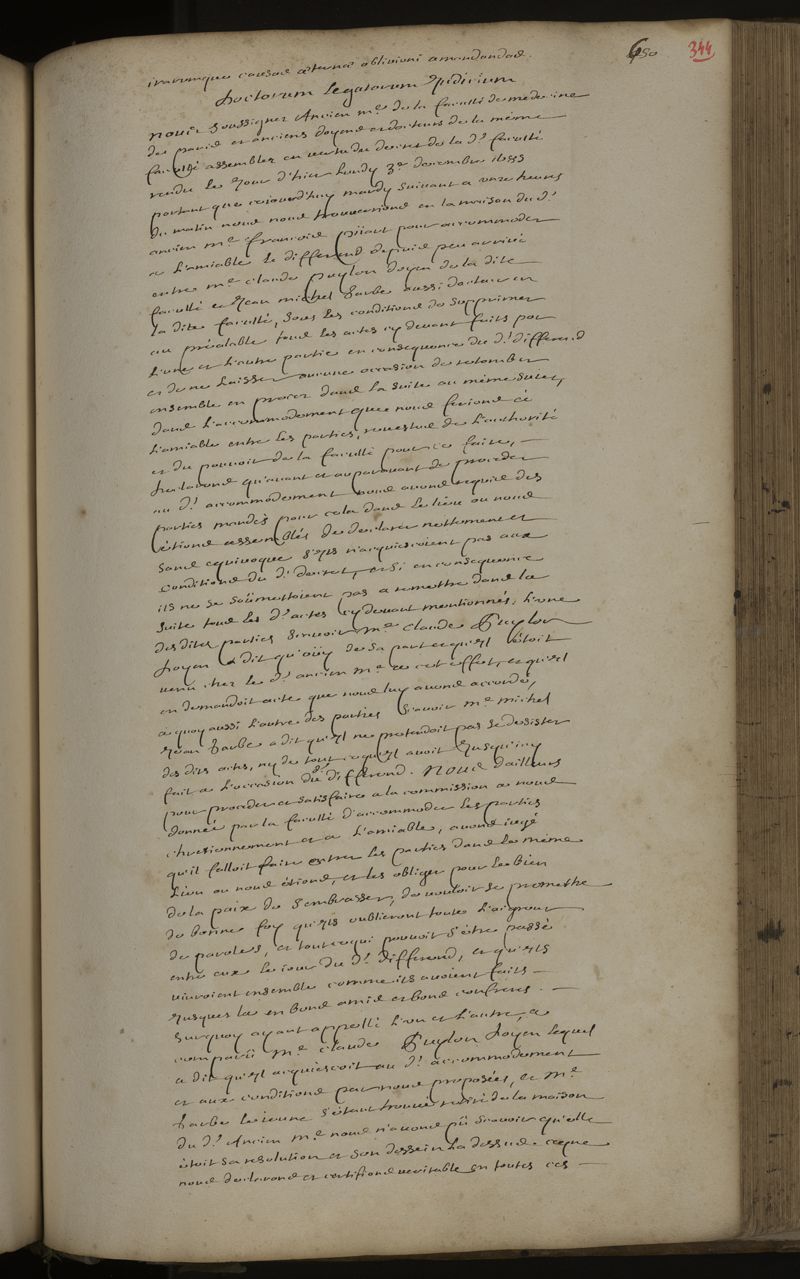 650 344
irarumque causas aeternae oblivioni amandandas.
Doctorum Legatorum Judicium
nous soussignez Ancien me. de la faculté de medecine
de paris et anciens doyens et docteurs de la même
faculté assemblez en vertu du decret de la dt. faculté
rendu le jour d'hier lundy 3e. decembre
portant que cejourd'huy mardy suivant a onze heures
du matin nous nous trouverions en la maison du dt.
ancien me. francois pijart pour accommoder
a l'amiable le differend depuis peu arrivé
entre me. claude puylon doyen de la dite
faculté et Jean michel Garbe aussi docteur en
la dite faculté, sous les conditions de supprimer
au préalable tous les actes cy devant faits par
l'une et l'autre partie en consequence du dt. differend
et de ne laisser aucune occasion de retomber
ensemble en procez dans la suite au même sujet,
dans l'accommodement que nous ferions à
l'amiable entre les parties, revestus de l'authorité
et du pouvoir de la faculté pour ce faire,
declarons qu'avant et auparavant de proceder
au dt. accommodement nous avons requis des
parties mandés pour cela dans le lieu ou nous
étions assemblés de declarer nettement et
sans equivoque s'ils n'acquiescoient pas aux
conditions du dt. decret, et si en consequence
ils ne se soûmettoient pas a remettre dans la
suite tous les dts. actes cy devant mentionnés, l'une
des dites parties sçavoir me. Claude Puylon
Doyen a dit qu'oüy de sa part et qu'il étoit
venu chez le dt. ancien me. a cet effet, et qu'il
en demandoit acte que nous luy avons accordé,
a quoy aussi l'autre des parties sçavoir me. michel
Jean Garbe a dit qu'il ne pretendoit pas se desister
des dits actes, ny de tout ce qu'il avoit jusqu'icy
fait a l'occasion du dt. differend. Nous d'ailleurs
pour proceder et satisfaire a la commission a nous
donnée par la faculté d'accommoder les parties
chretiennement et a l'amiable, avons jugé
qu'il falloit faire entrer les parties dans le même
Lieu ou nous étions, et les obliger pour le bien
de la paix de s'embrasser, de vouloir se promettre
de bonne foy qu'ils oublieront toute l'aigreur
de paroles, et tout ce qui pouvoit s'être passé
entre eux le jour du dt. differend, et qu'ils
vivroient ensemble comme ils avoient faits
jusques la en bons amis et bons confreres.
surquoy ayant appellé l'un et l'autre, a
comparû me. claude Puylon Doyen lequel
a dit qu'il acquiescoit au dt. accommodement
et aux conditions par nous proposées, et me.
Garbe le jeune s'étant trouvé retiré de la maison
du dt. Ancien me. nous n'avons pû sçavoir qu'elle
étoit sa resolution et son dessein la dessus. ce que
nous declarons et certifions veritable en toutes ces